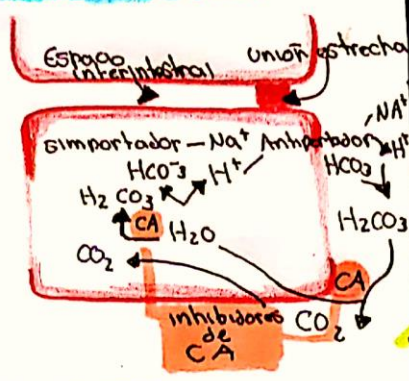 Espacio
interintestinal
unión estrecha
simportador — Na⁺
Antiportador
NA⁺
H⁺
HCO⁻3
H⁺
HCO3
H2CO3
CA
H2O
H2CO3
CO2
CA
inhibidores
de
CA
CO2